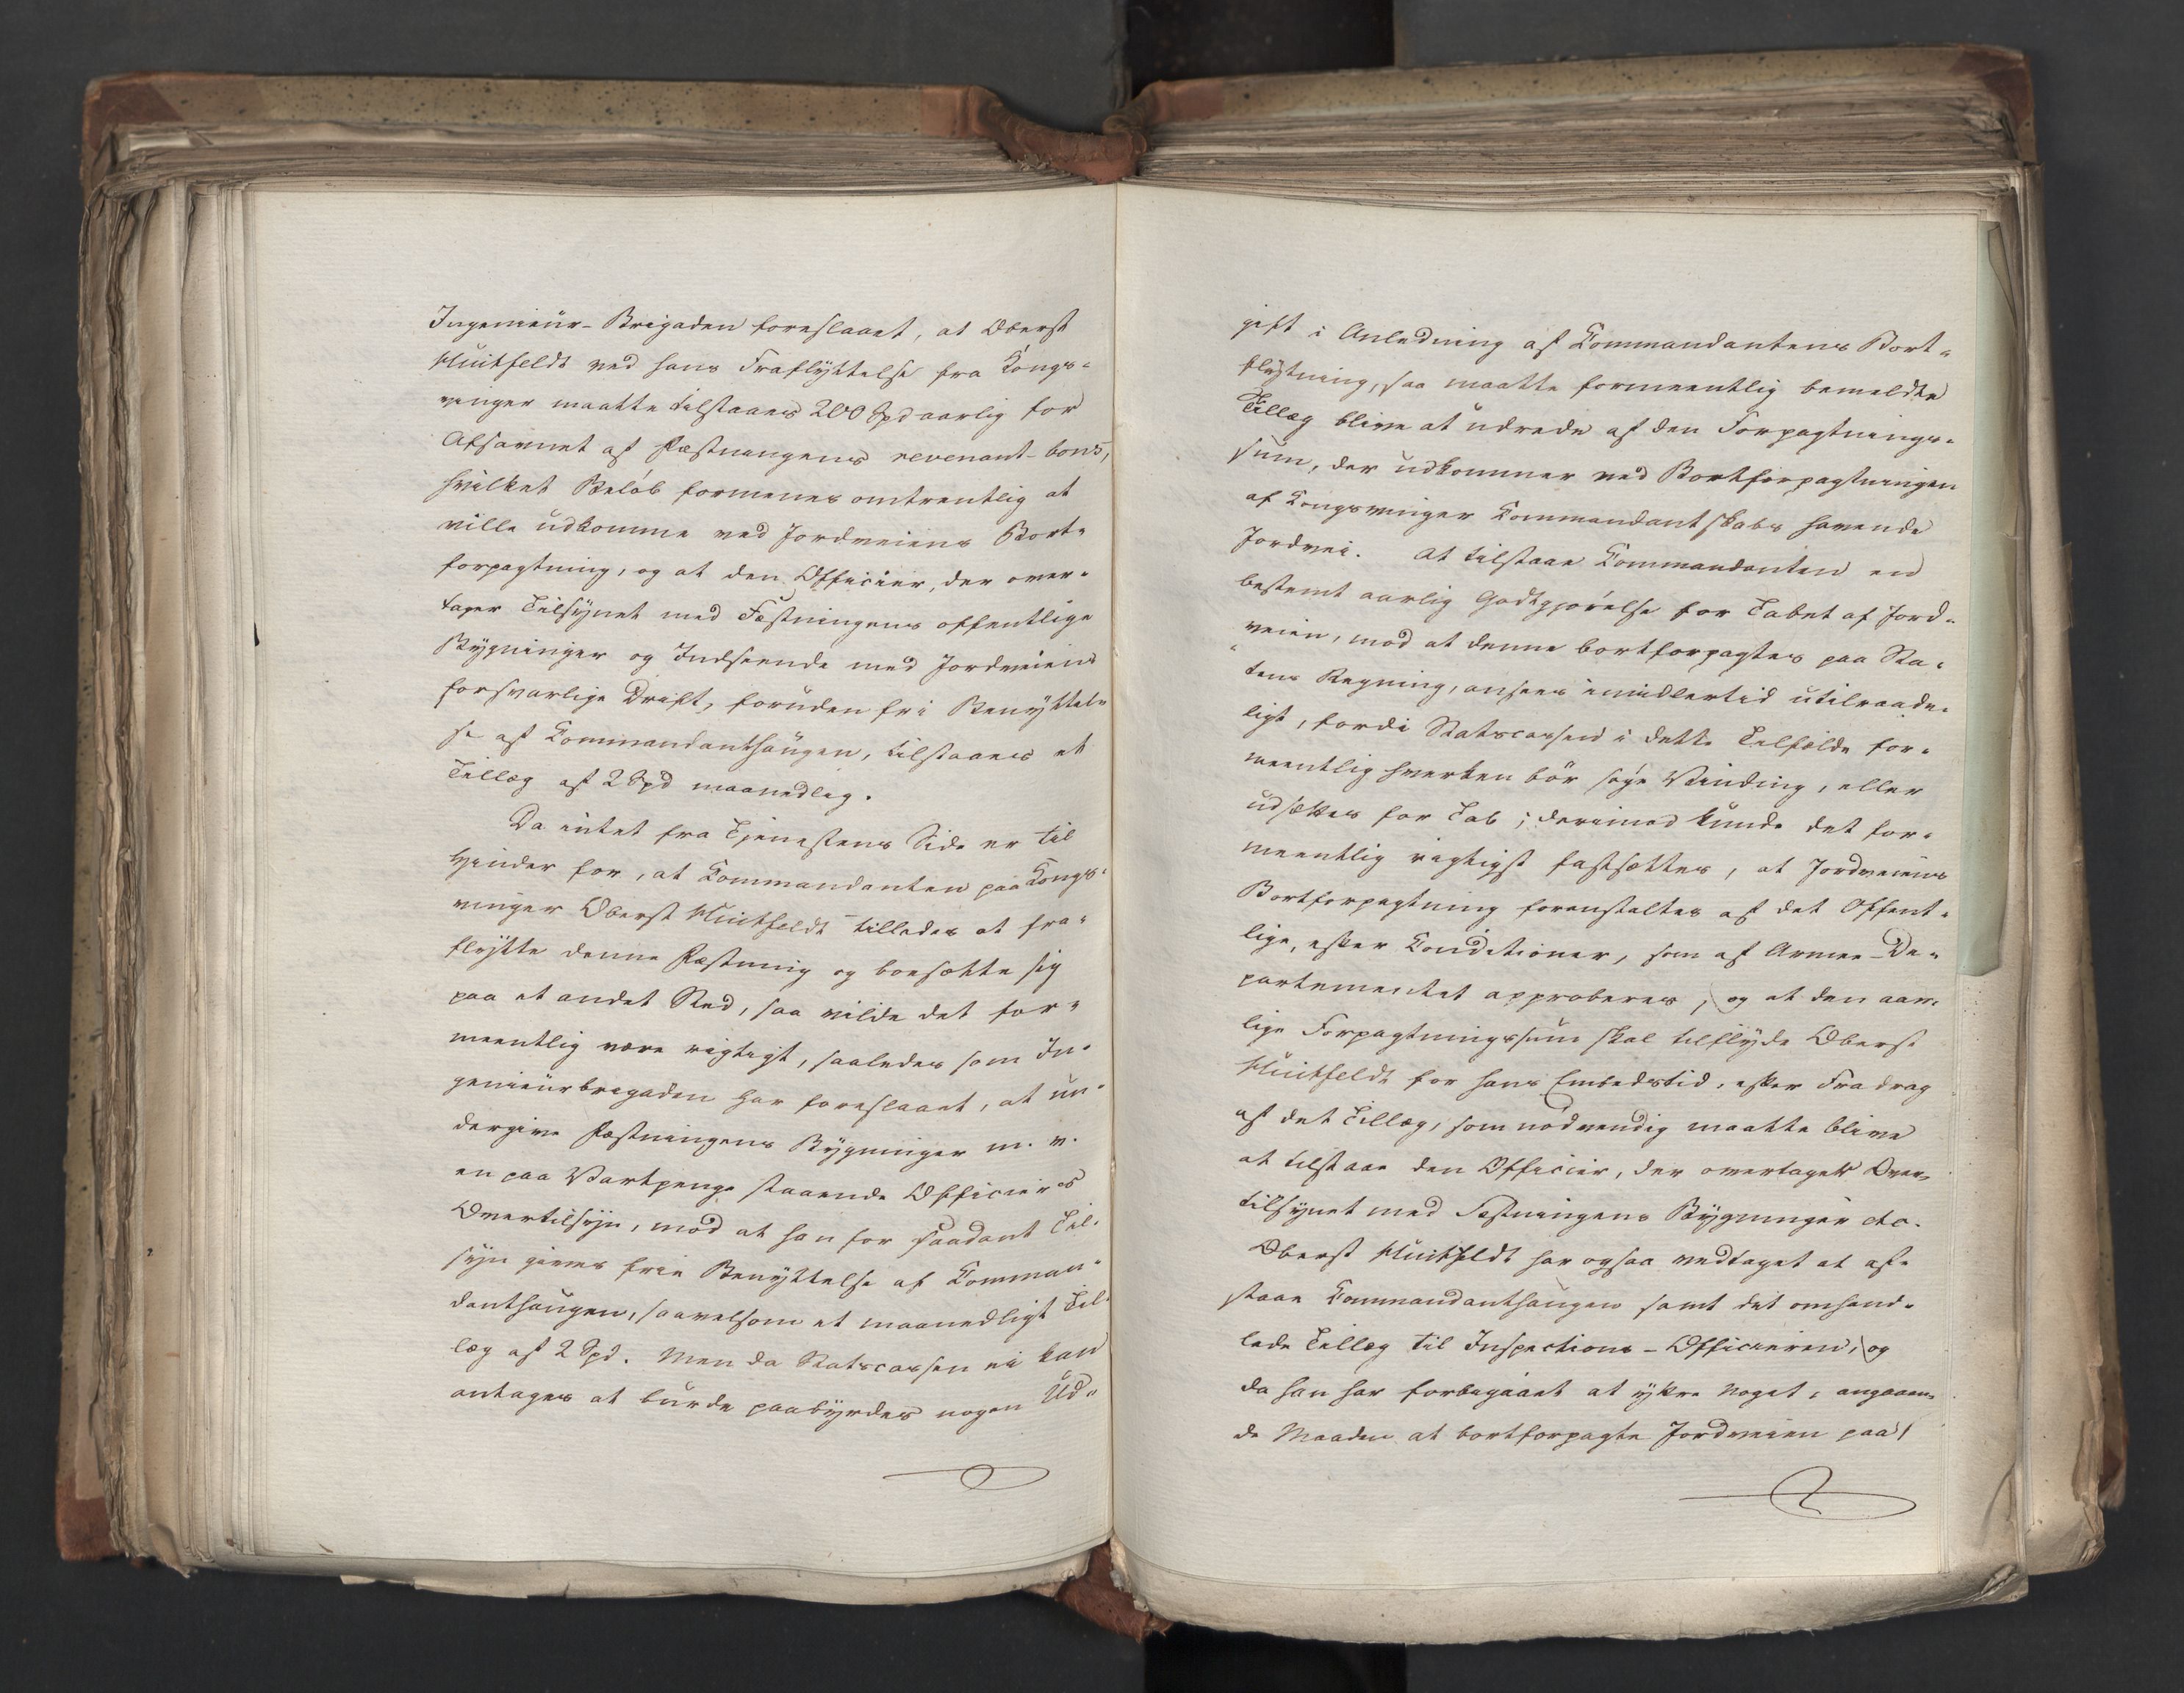 Ingenieur-Brigaden foreslaaet, at Oberst
Huitfeldt ved hans Fraflyttelse fra Kongs-
vinger maatte tilstaaes 200 Spd aarlig for
Afsavnet af Fæstningens revenant-bons,
hvilket Beløb formenes omtrentlig at
ville udkomme ved Jordveiens Bort-
forpagtning, og at den Officier, der over-
tager Tilsynet med Fæstningens offentlige
Bygninger og Indseende med Jordveiens
forsvarlige Drift, foruden fri Benyttel-
se af Commandanthaugen, tilstaaes et
Tillæg af 2 Spd maanedlig.
Da intet fra Tjenestens Side er til
Hinder for, at Commandanten paa Kongs-
vinger Oberst Huitfeldt tillades at fra-
flytte denne Fæstning og bosætte sig
paa et andet Sted, saa vilde det for-
meentlig være rigtigt, saaledes som In-
genieurbrigaden har foreslaaet, at un-
dergive Fæstningens Bygninger m. v.
en paa Vartpenge staaende Officiers
Overtilsyn, mod at han for saadant Til-
syn gives frie Benyttelse af Comman-
danthaugen, saavelsom et maanedligt Til-
læg af 2 Spd. Men da Statscassen ei kan
antages at burde paabyrdes nogen Ud-
gift i Anledning af Commandantens Bort-
flytning, saa maatte formeentlig bemeldte
Tillæg blive at udrede af den Forpagtnings-
sum, der udkommer ved Bortforpagtningen
af Kongsvinger Commandantskabs havende
Jordvei. At tilstaae Commandanten en
bestemt aarlig Godtgjørelse for Tabet af Jord-
veien, mod at denne bortforpagtes paa Sta-
tens Regning, ansees imidlertid utilraade-
ligt, fordi Statscassen i dette Tilfælde for-
meentlig hverken bør søge Vinding, eller
udsættes for Tab; derimod kunde det for-
meentlig rigtigst fastsættes, at Jordveiens
Bortforpagtning foranstaltes af det Offent-
lige, efter Conditioner, som af Armee-De-
partementet approberes, og at den aar-
lige Forpagtningssum skal tilflyde Oberst
Huitfeldt for hans Embedstid, efter Fradrag
af det Tillæg, som nødvendig maatte blive
at tilstaae den Officier, der overtager Over-
tilsynet med Fæstningens Bygninger etc.
Oberst Huitfeldt har ogsaa vedtaget at af-
staae Commandanthaugen samt det omhand-
lede Tillæg til Inspections-Officieren, og
da han har forbegaaet at yttre noget, angaaen-
de Maaden at bortforpagte Jordveien paa,